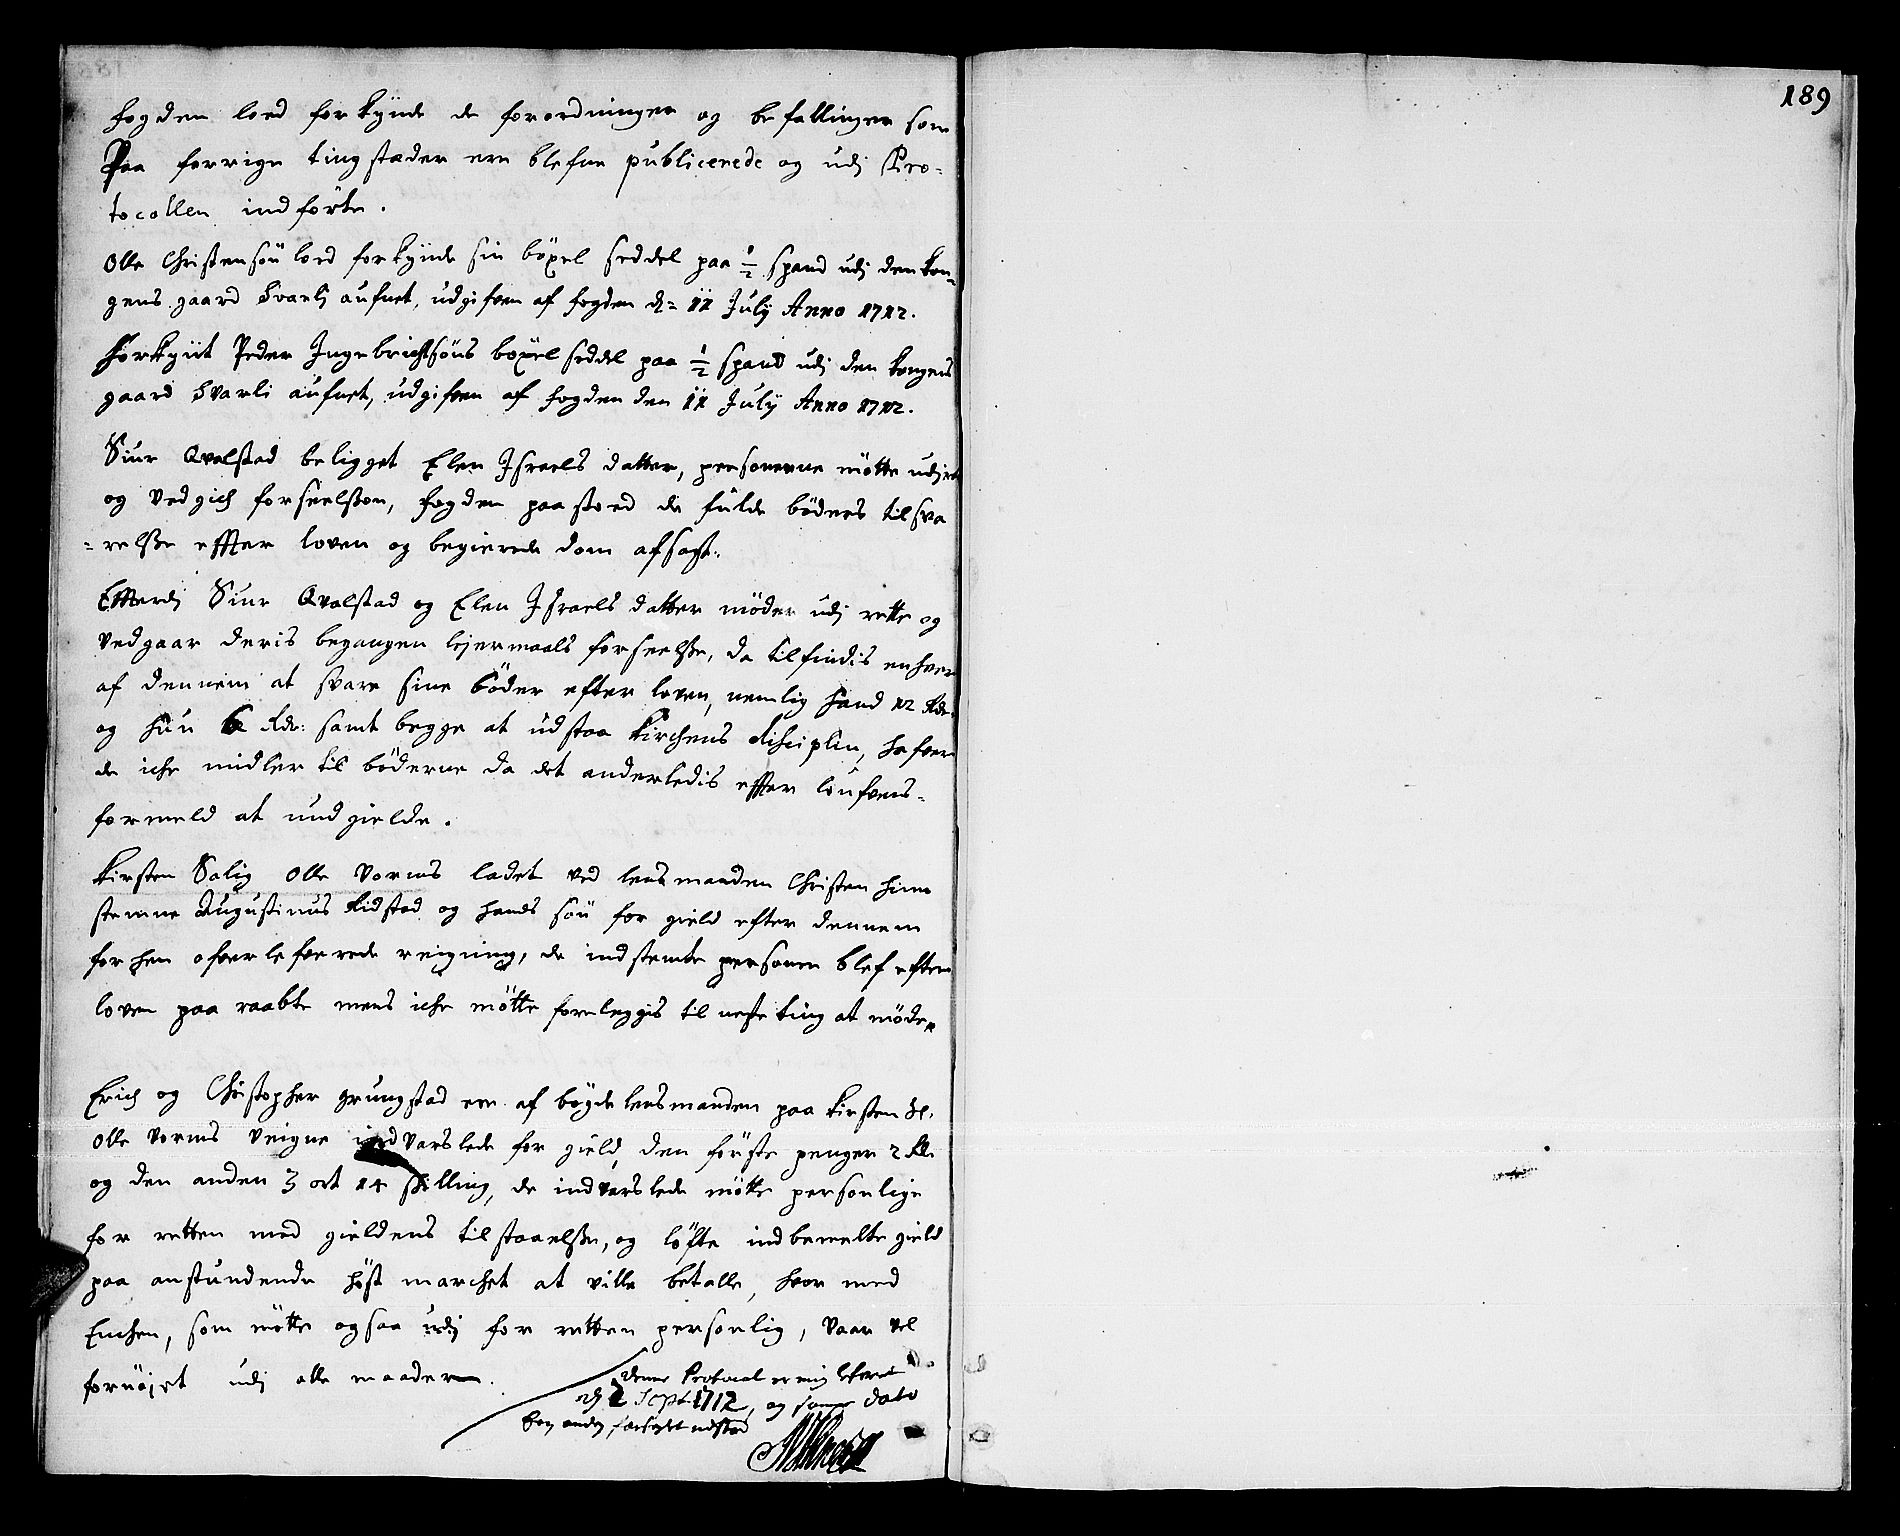 189
fogden loed forkynde de forordninger og befallinger som
Paa forrige tingstæder ere blefne publicerede og udj Pro-
tocollen indførte.
Olle Christensøn loed forkynde sin böxel seddel paa ½ spand udj den kon-
gens gaard Svarlj aufnet, udgifven af fogden d: 11 July Anno 1712.
Forkynt Peder Ingebrichtsøns boxel seddel paa ½ spand udj den kongens
gaard Svarli aufnet, udgifven af fogden den 11 July Anno 1712.
Siur Qvalstad beligget Elen Israels datter, personerne møtte udj ret
og vedgich forseelsen, fogden paastoed de fulde bøders tilsva
=relsse effter loven og begierede dom afsagt.
Effterdj Siur Qvalstad og Elen Israels datter møder udj rette og
vedgaar deris begangen lejermaals forseelsse, da tilfindis enhver
af dennem at svare sine bøder efter loven, nemlig hand 12 Rdr.
og hun 6 Rdr: samt begge at udstaa kirchens disciplin, hafver
de iche midler til bøderne da det anderledis effter loufvens-
formeld at undgielde.
Kirsten Salig Olle Vorms ladet ved lensmanden Christen
stemne Augustinus Kidstad og hands søn for gield efter dennem
forhen ofverlefverede reigning, de indstemte personer blef efter
loven paa raabte mens iche møtte forleggis til neste ting at møde.
Erich og Christopher grungstad ere af bøyde lensmanden paa Kirsten Sl.
Olle Vorms veigne indvarslede for gield, den første penger 2 Rd.
og den anden 3 ort 14 skilling, de indvarslede møtte personlige
for retten med gieldens tilstaaelsse, og løfte indbemelte gield
paa anstundende høst marchet at ville betalle, hvor med
Enchen, som møtte ogsaa udj for retten personlig, vaar vel
fornøjet udj alle maader.
denne Protocol er mig leferet
d 2 Sept. 1712, og samme dato